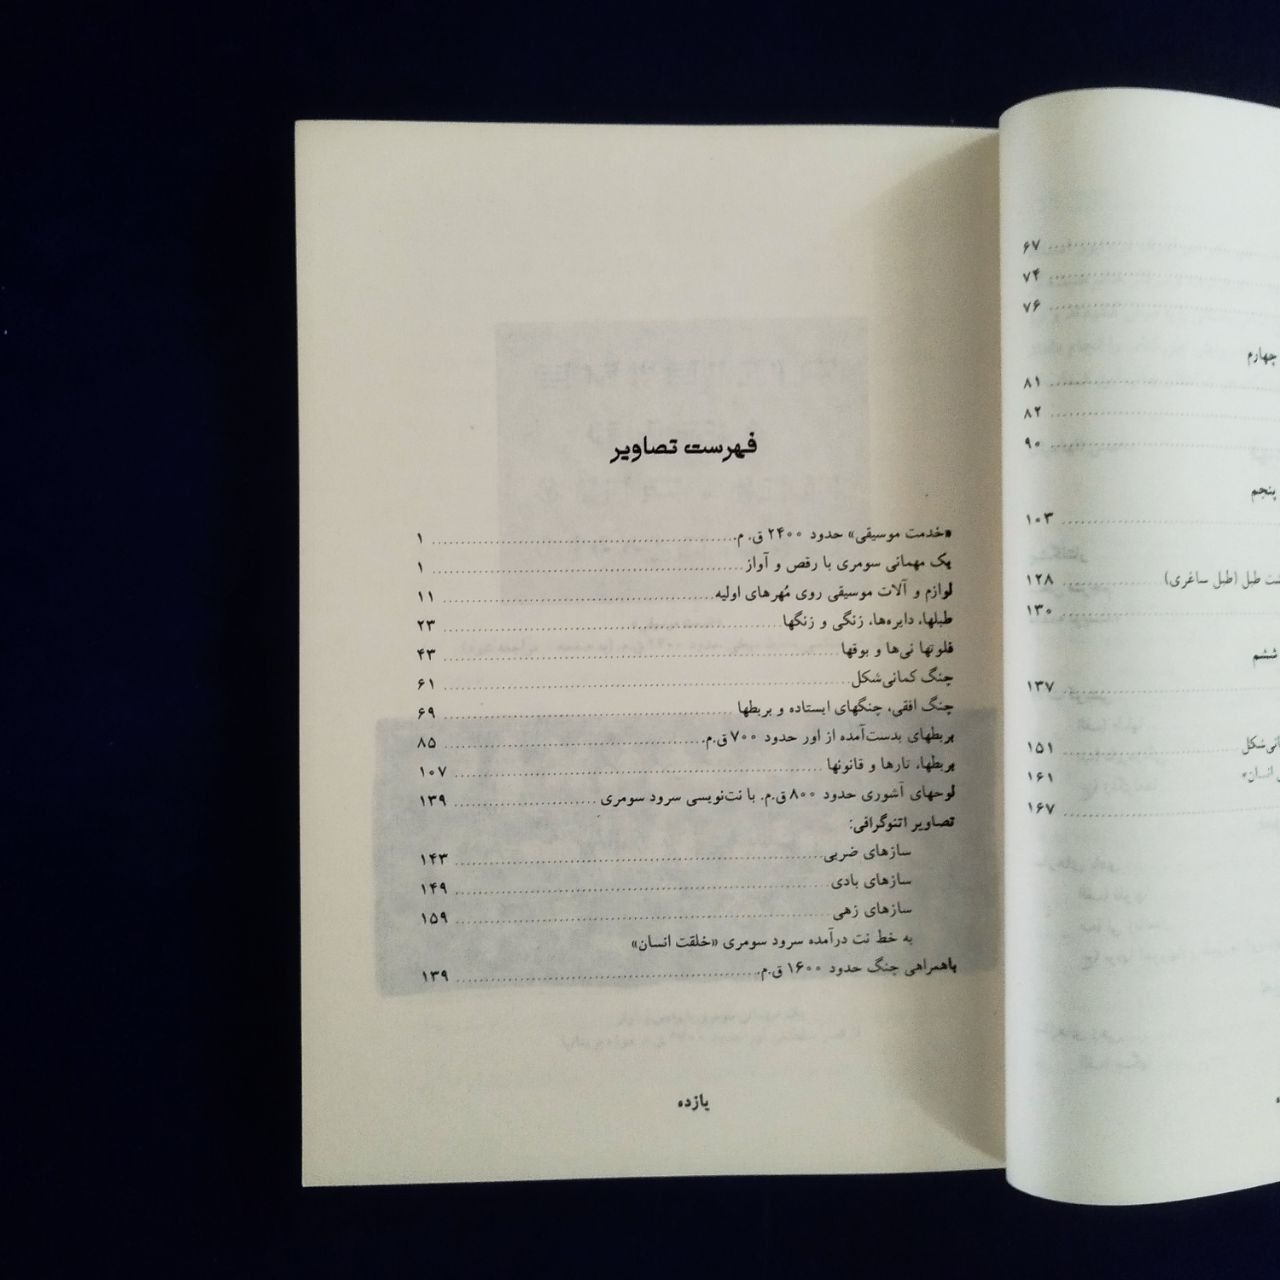 ۶۷
۷۴
۷۶
چهارم
۸۱
۸۲
۹۰
پنجم
۱۰۳
طبل (طبل ساغری) ۱۲۸
۱۳۰
ششم
۱۳۷
۱۵۱
انسان» ۱۶۱
۱۶۷
فهرست تصاویر
«خدمت موسیقی» حدود ۲۴۰۰ ق. م. ۱
یک مهمانی سومری با رقص و آواز ۱
لوازم و آلات موسیقی روی مُهرهای اولیه ۱۱
طبلها، دایره‌ها، زنگی و زنگها ۲۳
فلوتها نی‌ها و بوقها ۴۳
چنگ کمانی‌شکل ۶۱
چنگ افقی، چنگهای ایستاده و بربطها ۶۹
بربطهای بدست‌آمده از اور حدود ۷۰۰ ق.م. ۸۵
بربطها، تارها و قانونها ۱۰۷
لوحهای آشوری حدود ۸۰۰ ق.م. با نت‌نویسی سرود سومری ۱۳۹
تصاویر اتنوگرافی:
سازهای ضربی ۱۴۳
سازهای بادی ۱۴۹
سازهای زهی ۱۵۹
به خط نت درآمده سرود سومری «خلقت انسان»
باهمراهی چنگ حدود ۱۶۰۰ ق.م. ۱۳۹
یازده